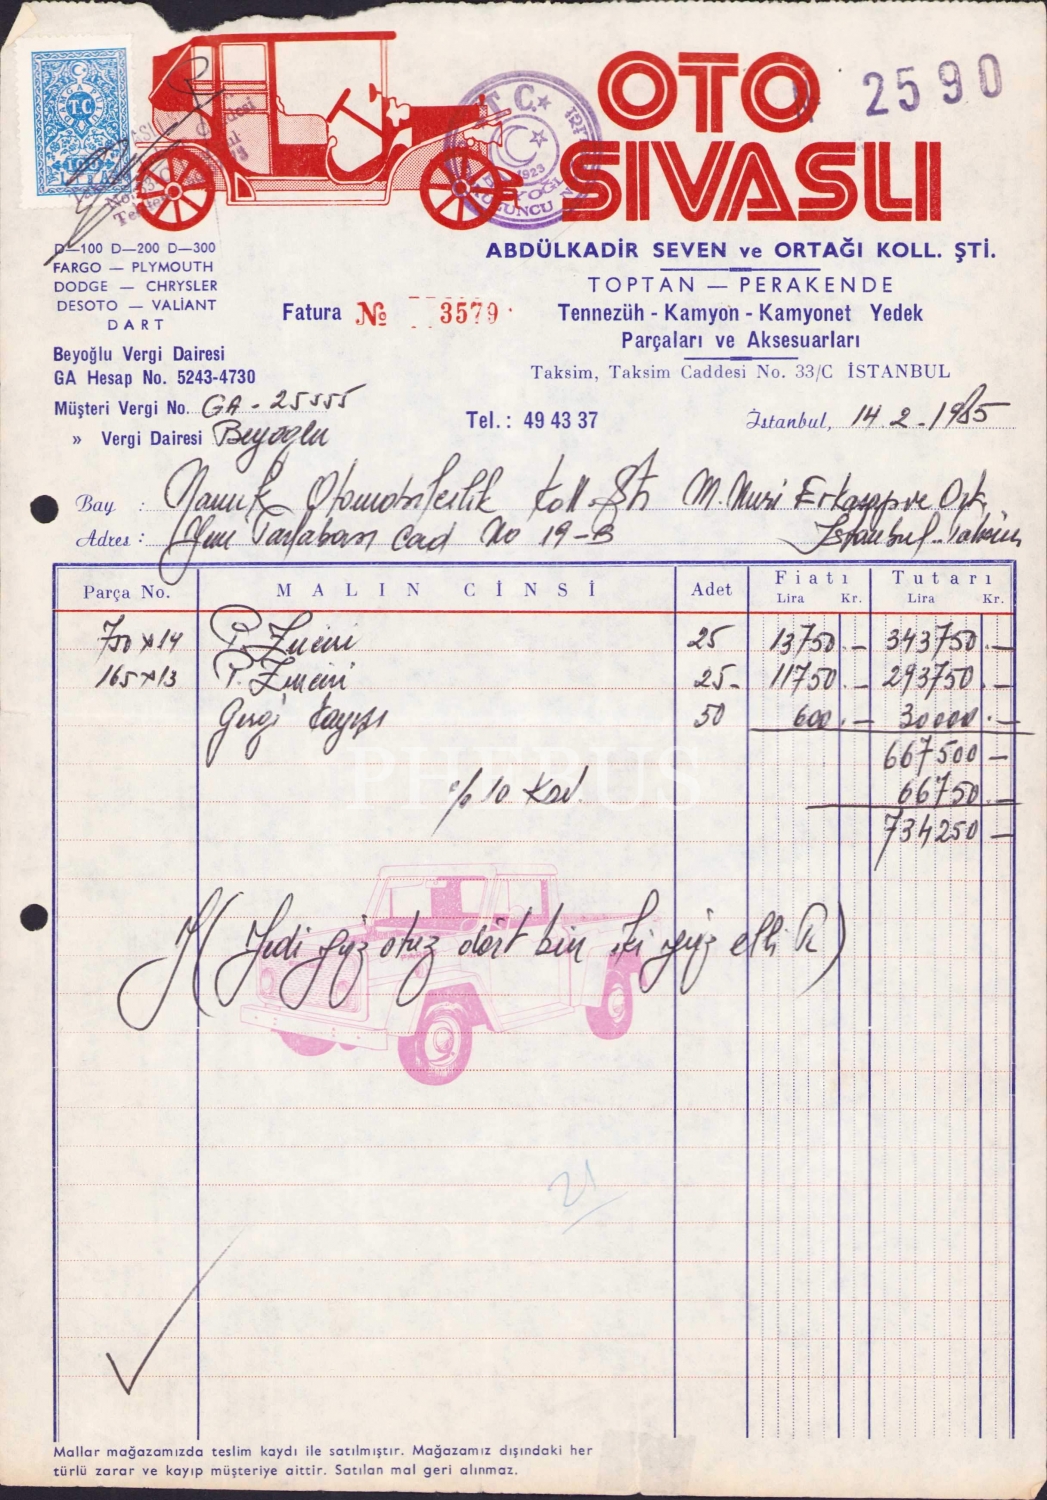 OTO
SIVASLI
2590
T.C.
1923
D—100 D—200 D—300
FARGO — PLYMOUTH
DODGE — CHRYSLER
DESOTO — VALIANT
DART
ABDÜLKADİR SEVEN ve ORTAĞI KOLL. ŞTİ.
TOPTAN — PERAKENDE
Fatura № 3579
Tennezüh - Kamyon - Kamyonet Yedek
Parçaları ve Aksesuarları
Beyoğlu Vergi Dairesi
GA Hesap No. 5243-4730
Taksim, Taksim Caddesi No. 33/C İSTANBUL
Müşteri Vergi No. GA - 25555
» Vergi Dairesi Beyoğlu
Tel.: 49 43 37
İstanbul, 14.2.1985
Bay : Namık Otomobilcilik Koll. Şti M. Nuri
Adres : Yeni Tarlabaşı Cad No 19-B İstanbul
Parça No. MALIN CİNSİ Adet Fiatı Lira Kr. Tutarı Lira Kr.
750x14 P. Zinciri 25 13750.— 343750.—
165x13 P. Zinciri 25- 11750.— 293750.—
Gergi Kayışı 50 600.— 30000.—
667500 —
% 10 Kdv. 66750.—
734250 —
Y (Yedi yüz otuz dört bin iki yüz elli TL)
PHEBUS
21
Mallar mağazamızda teslim kaydı ile satılmıştır. Mağazamız dışındaki her
türlü zarar ve kayıp müşteriye aittir. Satılan mal geri alınmaz.